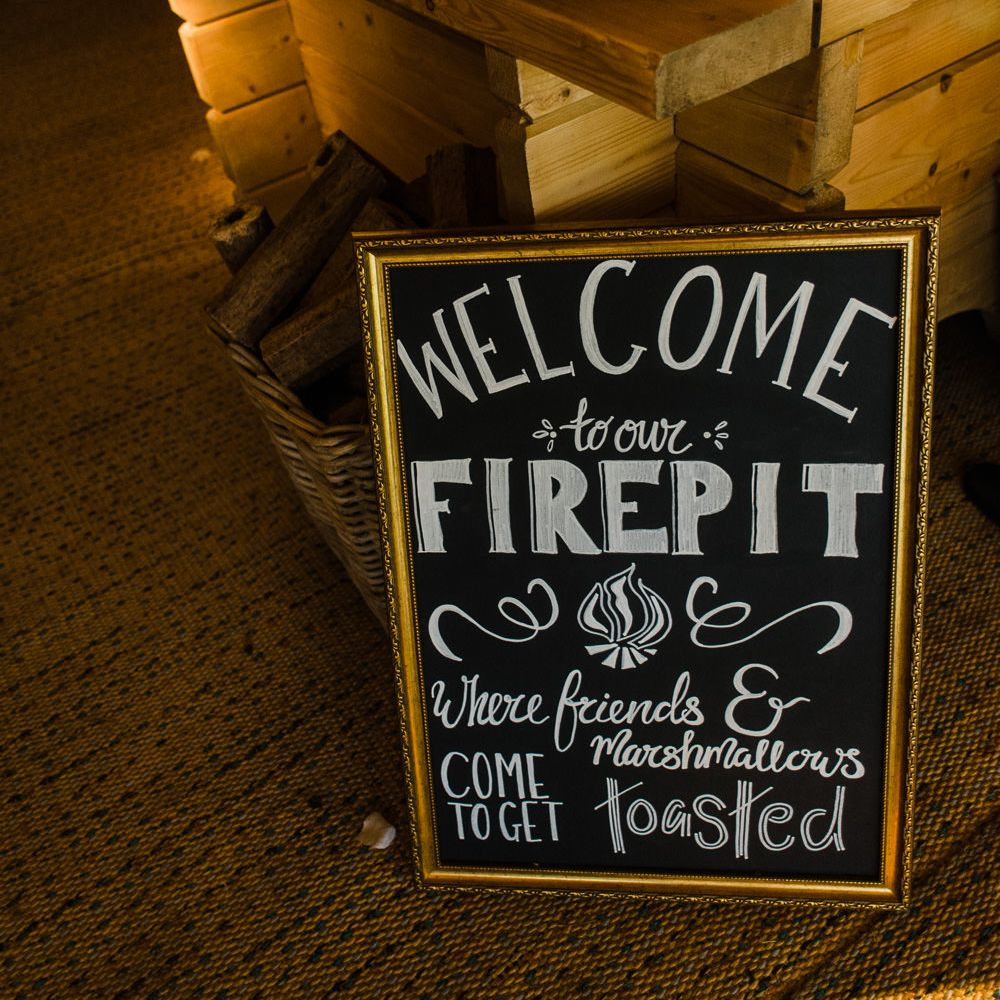 WELCOME
to our
FIREPIT
Where friends &
Marshmallows
COME
TO GET
toasted